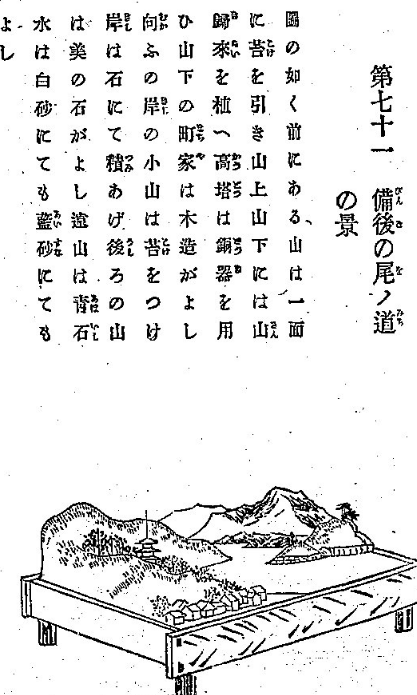 第七十一 備後の尾ノ道
の景
圖の如く前にある、山は一面
に苔を引き山上山下には山
歸來を植へ高塔は銅器を用
ひ山下の町家は木造がよし
向ふの岸の小山は苔をつけ
岸は石にて積あげ後ろの山
は美の石がよし遠山は青石
水は白砂にても藍砂にても
よし